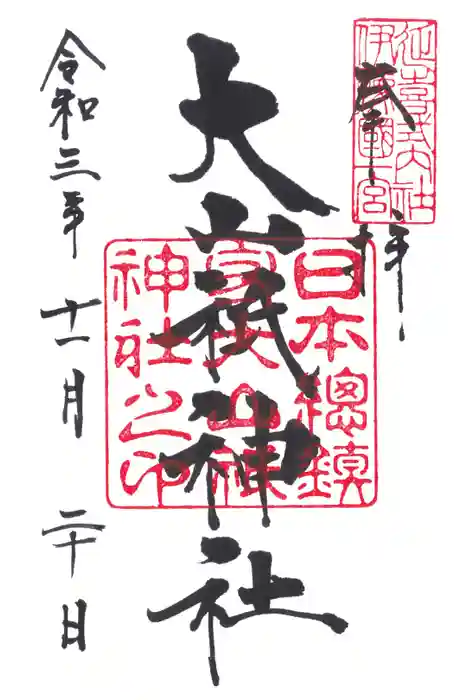 奉拝
延喜式内社
伊豫國一宮
大山祇神社
日本總鎮
神社之印
令和三年 十一月 二十日